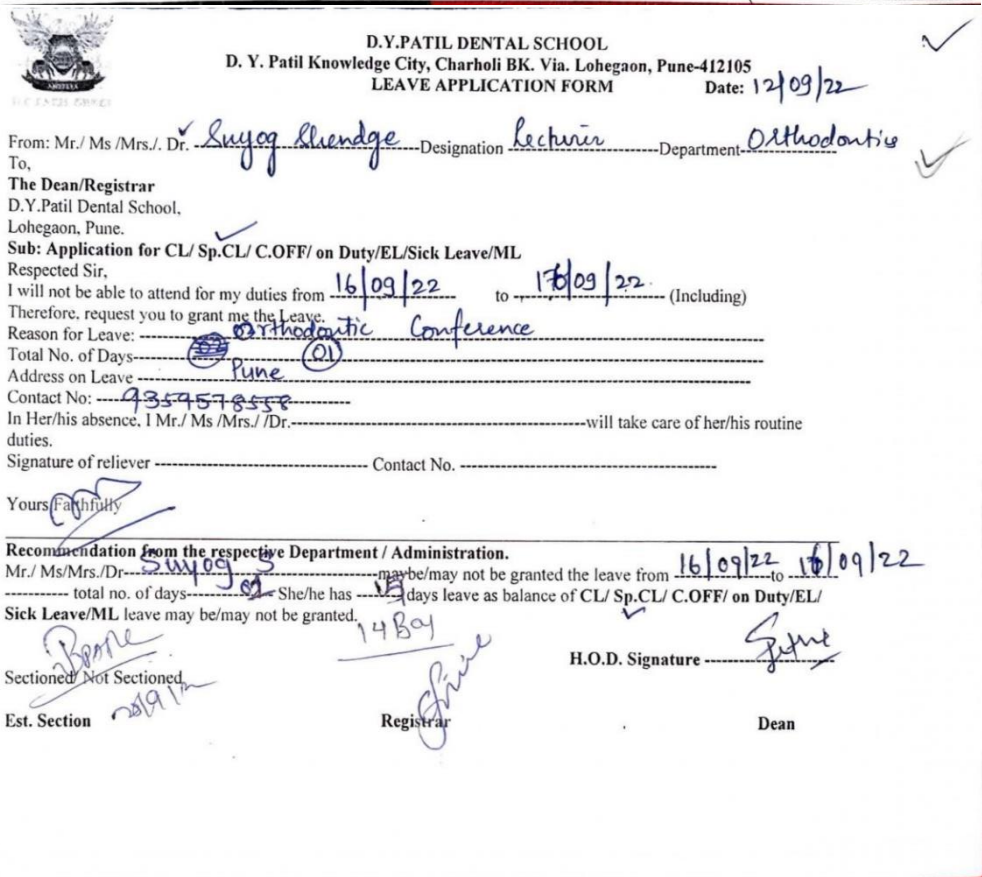 D.Y.PATIL DENTAL SCHOOL
D. Y. Patil Knowledge City, Charholi BK. Via. Lohegaon, Pune-412105
LEAVE APPLICATION FORM Date: 12/09/22
From: Mr./ Ms /Mrs./. Dr. Suyog Shendge Designation Lecturer Department Orthodontics
To,
The Dean/Registrar
D.Y.Patil Dental School,
Lohegaon, Pune.
Sub: Application for CL/ Sp.CL/ C.OFF/ on Duty/EL/Sick Leave/ML
Respected Sir,
I will not be able to attend for my duties from 16/09/22 to /09/22 (Including)
Therefore, request you to grant me the Leave.
Reason for Leave: Orthodontic Conference
Total No. of Days 01
Address on Leave Pune
Contact No: 9359578558
In Her/his absence, I Mr./ Ms /Mrs./ /Dr. will take care of her/his routine
duties.
Signature of reliever Contact No.
Yours Faithfully
Recommendation from the respective Department / Administration.
Mr./ Ms/Mrs./Dr Suyog S maybe/may not be granted the leave from 16/09/22 to /09/22
total no. of days She/he has 15 days leave as balance of CL/ Sp.CL/ C.OFF/ on Duty/EL/
Sick Leave/ML leave may be/may not be granted.
14 Bal
H.O.D. Signature
Sectioned/ Not Sectioned
Est. Section Registrar Dean